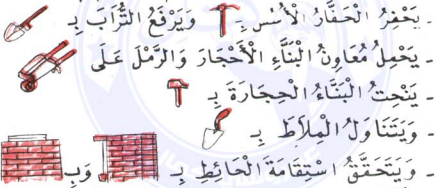 - يَحْفِرُ الْحَفَّارُ الْأُسُسَ بِـ وَيَرْفَعُ التُّرَابَ بِـ
- يَحْمِلُ مُعَاوِنُ الْبَنَّاءِ الْأَحْجَارَ وَالرَّمْلَ عَلَى
- يَنْحِتُ الْبَنَّاءُ الْحِجَارَةَ بِـ
- وَيَتَنَاوَلُ الْمِلَاطَ بِـ
- وَيَتَحَقَّقُ اسْتِقَامَةَ الْحَائِطِ بِـ وَبِـ